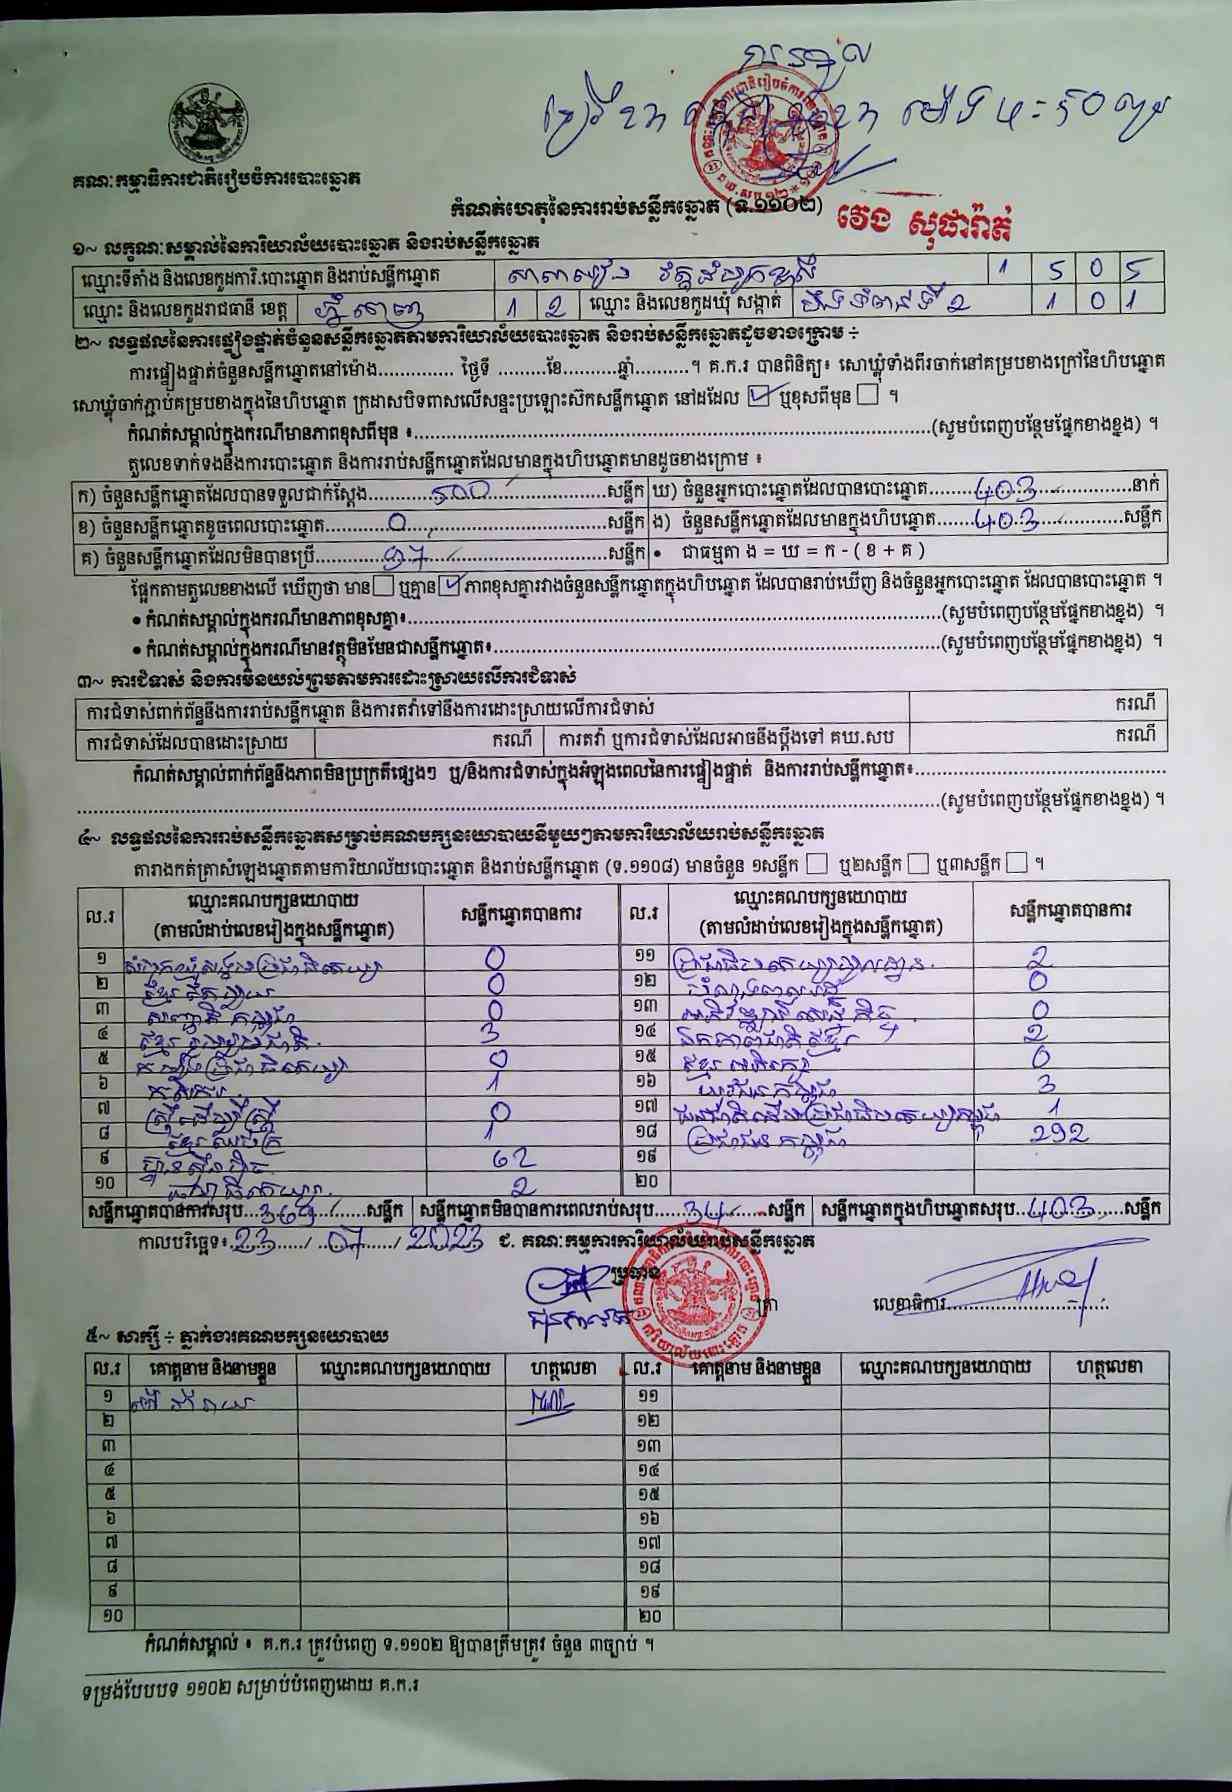 គណៈកម្មាធិការជាតិរៀបចំការបោះឆ្នោត
កំណត់ហេតុនៃការរាប់សន្លឹកឆ្នោត (ទ.១១០២)
វេង សុផារ៉ាត់
១~ លក្ខណៈសម្គាល់នៃការិយាល័យបោះឆ្នោត និងរាប់សន្លឹកឆ្នោត
ឈ្មោះទីតាំង និងលេខកូដការិ.បោះឆ្នោត និងរាប់សន្លឹកឆ្នោត 1 5 0 5
ឈ្មោះ និងលេខកូដរាជធានី ខេត្ត ភ្នំពេញ 1 2 ឈ្មោះ និងលេខកូដឃុំ សង្កាត់ បឹងទំពុនទី2 1 0 1
២~ លទ្ធផលនៃការផ្ទៀងផ្ទាត់ចំនួនសន្លឹកឆ្នោតតាមការិយាល័យបោះឆ្នោត និងរាប់សន្លឹកឆ្នោតដូចខាងក្រោម ÷
ការផ្ទៀងផ្ទាត់ចំនួនសន្លឹកឆ្នោតនៅម៉ោង.............. ថ្ងៃទី .........ខែ..........ឆ្នាំ..........។ គ.ក.រ បានពិនិត្យ៖ សោឃ្លុំទាំងពីរចាក់នៅគម្របខាងក្រៅនៃហិបឆ្នោត
សោឃ្លុំចាក់ភ្ជាប់គម្របខាងក្នុងនៃហិបឆ្នោត ក្រដាសបិទពាសលើសន្ទះប្រឡោះស៊កសន្លឹកឆ្នោត នៅដដែល ☑ ឬខុសពីមុន ☐ ។
កំណត់សម្គាល់ក្នុងករណីមានភាពខុសពីមុន ៖..........(សូមបំពេញបន្ថែមផ្នែកខាងខ្នង) ។
តួលេខទាក់ទងនឹងការបោះឆ្នោត និងការរាប់សន្លឹកឆ្នោតដែលមានក្នុងហិបឆ្នោតមានដូចខាងក្រោម ៖
ក) ចំនួនសន្លឹកឆ្នោតដែលបានទទួលជាក់ស្តែង.....500.....សន្លឹក ឃ) ចំនួនអ្នកបោះឆ្នោតដែលបានបោះឆ្នោត.....403.....នាក់
ខ) ចំនួនសន្លឹកឆ្នោតខូចពេលបោះឆ្នោត.....0.....សន្លឹក ង) ចំនួនសន្លឹកឆ្នោតដែលមានក្នុងហិបឆ្នោត.....403.....សន្លឹក
គ) ចំនួនសន្លឹកឆ្នោតដែលមិនបានប្រើ.....97.....សន្លឹក • ជាធម្មតា ង = ឃ = ក - ( ខ + គ )
ផ្អែកតាមតួលេខខាងលើ ឃើញថា មាន ☐ ឬគ្មាន ☑ ភាពខុសគ្នារវាងចំនួនសន្លឹកឆ្នោតក្នុងហិបឆ្នោត ដែលបានរាប់ឃើញ និងចំនួនអ្នកបោះឆ្នោត ដែលបានបោះឆ្នោត ។
• កំណត់សម្គាល់ក្នុងករណីមានភាពខុសគ្នា៖..........(សូមបំពេញបន្ថែមផ្នែកខាងខ្នង) ។
• កំណត់សម្គាល់ក្នុងករណីមានវត្ថុមិនមែនជាសន្លឹកឆ្នោត៖..........(សូមបំពេញបន្ថែមផ្នែកខាងខ្នង) ។
៣~ ការជំទាស់ និងការមិនយល់ព្រមតាមការដោះស្រាយលើការជំទាស់
ការជំទាស់ពាក់ព័ន្ធនឹងការរាប់សន្លឹកឆ្នោត និងការតវ៉ាទៅនឹងការដោះស្រាយលើការជំទាស់ ករណី
ការជំទាស់ដែលបានដោះស្រាយ ករណី ការតវ៉ា ឬការជំទាស់ដែលអាចនឹងប្តឹងទៅ គឃ.សប ករណី
កំណត់សម្គាល់ពាក់ព័ន្ធនឹងភាពមិនប្រក្រតីផ្សេងៗ ឬ/និងការជំទាស់ក្នុងអំឡុងពេលនៃការផ្ទៀងផ្ទាត់ និងការរាប់សន្លឹកឆ្នោត៖..........
..........(សូមបំពេញបន្ថែមផ្នែកខាងខ្នង) ។
៤~ លទ្ធផលនៃការរាប់សន្លឹកឆ្នោតសម្រាប់គណបក្សនយោបាយនីមួយៗតាមការិយាល័យរាប់សន្លឹកឆ្នោត
តារាងកត់ត្រាសំឡេងឆ្នោតតាមការិយាល័យបោះឆ្នោត និងរាប់សន្លឹកឆ្នោត (ទ.១១០៨) មានចំនួន ១សន្លឹក ☐ ឬ២សន្លឹក ☐ ឬ៣សន្លឹក ☐ ។
ល.រ ឈ្មោះគណបក្សនយោបាយ (តាមលំដាប់លេខរៀងក្នុងសន្លឹកឆ្នោត) សន្លឹកឆ្នោតបានការ ល.រ ឈ្មោះគណបក្សនយោបាយ (តាមលំដាប់លេខរៀងក្នុងសន្លឹកឆ្នោត) សន្លឹកឆ្នោតបានការ
១ សំបុកឃ្មុំសង្គមប្រជាធិបតេយ្យ 0 ១១ 2
២ ខ្មែរ 0 ១២ 0
៣ សញ្ជាតិកម្ពុជា 0 ១៣ 0
៤ ខ្មែររួបរួមជាតិ 3 ១៤ ឯកភាពជាតិខ្មែរ 2
៥ កម្លាំងប្រជាធិបតេយ្យ 0 ១៥ ខ្មែរ 0
៦ កសិករ 1 ១៦ យុវជនកម្ពុជា 3
៧ ស្ត្រីដើម្បីស្ត្រី 0 ១៧ 1
៨ ខ្មែរឈប់ក្រ 1 ១៨ ប្រជាជនកម្ពុជា 292
៩ ហ្វ៊ុនស៊ិនប៉ិច 62 ១៩
១០ ធម្មាធិបតេយ្យ 2 ២០
សន្លឹកឆ្នោតបានការសរុប...369...សន្លឹក សន្លឹកឆ្នោតមិនបានការពេលរាប់សរុប.....34.....សន្លឹក សន្លឹកឆ្នោតក្នុងហិបឆ្នោតសរុប..403.....សន្លឹក
កាលបរិច្ឆេទ៖ 23 / 07 / 2023 ជ. គណៈកម្មការការិយាល័យរាប់សន្លឹកឆ្នោត
ប្រធាន ត្រា លេខាធិការ..........
៥~ សាក្សី ÷ ភ្នាក់ងារគណបក្សនយោបាយ
ល.រ គោត្តនាម និងនាមខ្លួន ឈ្មោះគណបក្សនយោបាយ ហត្ថលេខា ល.រ គោត្តនាម និងនាមខ្លួន ឈ្មោះគណបក្សនយោបាយ ហត្ថលេខា
១ ១១
២ ១២
៣ ១៣
៤ ១៤
៥ ១៥
៦ ១៦
៧ ១៧
៨ ១៨
៩ ១៩
១០ ២០
កំណត់សម្គាល់ ៖ គ.ក.រ ត្រូវបំពេញ ទ.១១០២ ឱ្យបានត្រឹមត្រូវ ចំនួន ៣ច្បាប់ ។
ទម្រង់បែបបទ ១១០២ សម្រាប់បំពេញដោយ គ.ក.រ